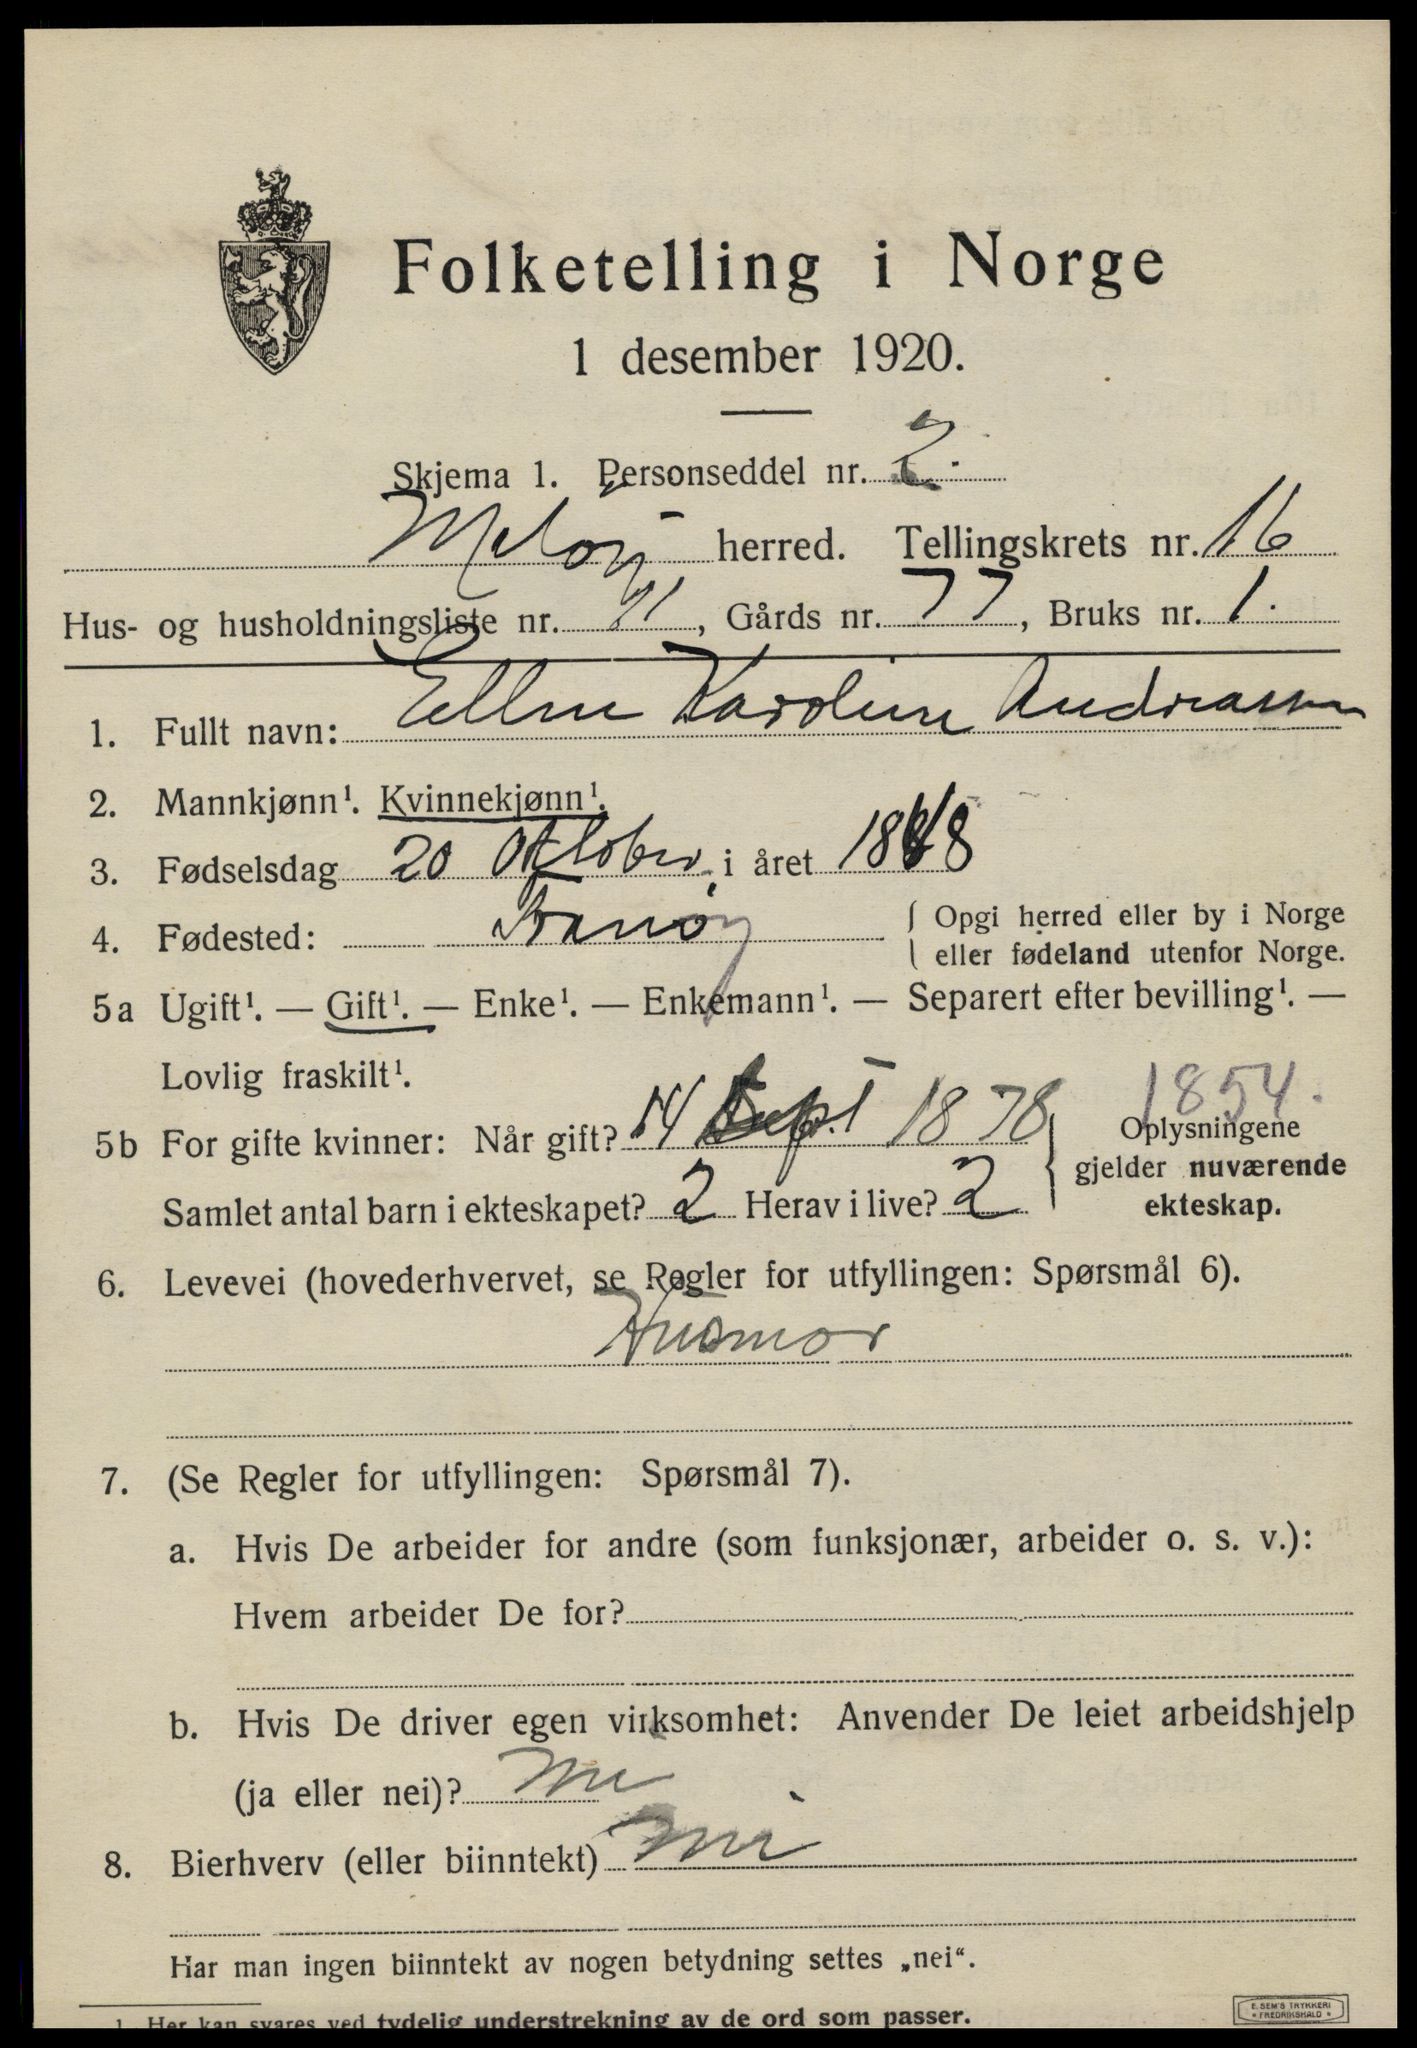 Folketelling i Norge
1 desember 1920.
Skjema 1. Personseddel nr. 2.
Meløy herred. Tellingskrets nr. 16
Hus- og husholdningsliste nr. 71, Gårds nr. 77, Bruks nr. 1.
1. Fullt navn: Ellen Karoline Andreassen
2. Mannkjønn¹. Kvinnekjønn¹.
3. Fødselsdag 20 Oktober i året 1848
4. Fødested: Tranøy { Opgi herred eller by i Norge
eller fødeland utenfor Norge.
5a Ugift¹. — Gift¹. — Enke¹. — Enkemann¹. — Separert efter bevilling¹. —
Lovlig fraskilt¹.
1854.
5b For gifte kvinner: Når gift? 14 Sept 1878
Samlet antal barn i ekteskapet? 2 Herav i live? 2
Oplysningene
gjelder nuværende
ekteskap.
6. Levevei (hovederhvervet, se Regler for utfyllingen: Spørsmål 6).
Husmor
7. (Se Regler for utfyllingen: Spørsmål 7).
a. Hvis De arbeider for andre (som funksjonær, arbeider o. s. v.):
Hvem arbeider De for?
b. Hvis De driver egen virksomhet: Anvender De leiet arbeidshjelp
(ja eller nei)? nei
8. Bierhverv (eller biinntekt) nei
Har man ingen biinntekt av nogen betydning settes „nei“.
1 Her kan svares ved tydelig understrekning av de ord som passer.
E. SEM'S TRYKKERI
FREDRIKSHALD